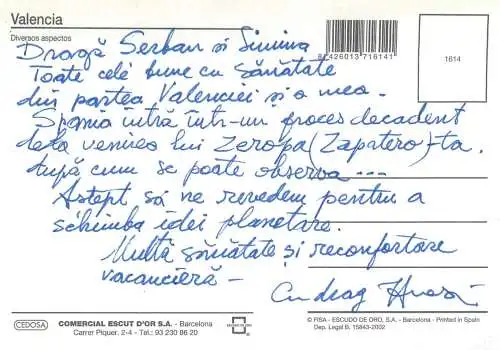 Valencia
Diversos aspectos
8 426013 716141
1614
Dragă Serban si Simina
Toate cele bune cu sănătate
din partea Valenciei și a mea.
Spania intră într-un proces decadent
dela venirea lui Zeropa (Zapatero)-ta.
după cum se poate observa...
Astept să ne revedem pentru a
schimba idei planetare.
Multă sănătate și reconfortare
vacancieră —
Cu drag
CEDOSA
COMERCIAL ESCUT D'OR S.A. - Barcelona
Carrer Piquer, 2-4 - Tel.: 93 230 86 20
© FISA - ESCUDO DE ORO, S.A. - Barcelona - Printed in Spain
Dep. Legal B. 15843-2002